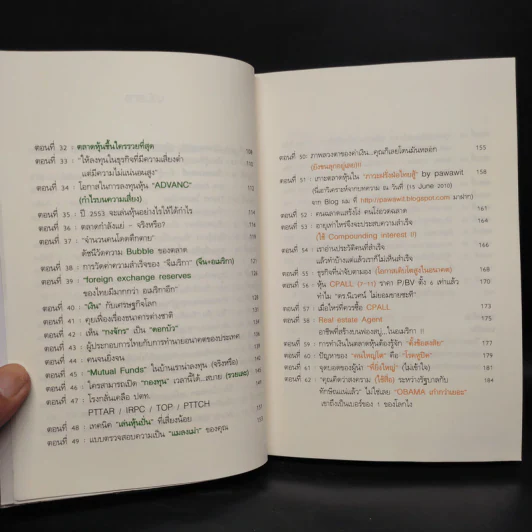 ตอนที่ 32 : ตลาดหุ้นขึ้นใครรวยที่สุด 108
ตอนที่ 33 : "ให้ลงทุนในธุรกิจที่มีความเสี่ยงต่ำ
แต่มีความไม่แน่นอนสูง"
ตอนที่ 34 : โอกาสในการลงทุนหุ้น "ADVANC" 112
(กำไรบนความเสี่ยง)
ตอนที่ 35 : ปี 2553 จะเล่นหุ้นอย่างไรให้ได้กำไร
ตอนที่ 36 : ตลาดกำลังแย่ - จริงหรือ?
ตอนที่ 37 : "จำนวนคนโดดตึกตาย"
ดัชนีวัดความ Bubble ของตลาด
ตอนที่ 38 : การวัดค่าความสำเร็จของ "จีเมริกา" (จีน+อเมริกา)
ตอนที่ 39 : "foreign exchange reserves
ของไทยมีมากกว่า อเมริกาอีก"
ตอนที่ 40 : "เงิน" กับเศรษฐกิจโลก
ตอนที่ 41 : คุยเฟื่องเรื่องธนาคารต่างชาติ
ตอนที่ 42 : เห็น "กงจักร" เป็น "ดอกบัว"
ตอนที่ 43 : ผู้ประกอบการไทยกับการทำนายอนาคตของประเทศ
ตอนที่ 44 : คนจนยิ่งจน
ตอนที่ 45 : "Mutual Funds" ในบ้านเราน่าลงทุน (จริงหรือ)
ตอนที่ 46 : ใครสามารถเปิด "กองทุน" เวลานี้ได้...สบาย (รวยเละ)
ตอนที่ 47 : โรงกลั่นเครือ ปตท.
PTTAR / IRPC / TOP / PTTCH
ตอนที่ 48 : เทคนิค "เล่นหุ้นปั่น" ที่เสี่ยงน้อย
ตอนที่ 49 : แบบตรวจสอบความเป็น "แมลงเม่า" ของคุณ 153
ตอนที่ 50: ภาพลวงตาของค่าเงิน...คุณก็เคยโดนมันหลอก 155
ตอนที่ 51 : เกาะตลาดหุ้นใน by pawawit 157
(นี่เอาวิเคราะห์จากบทความ ณ วันที่ (15 June 2010)
จาก Blog ผม ที่ http://pawawit.blogspot.com มาฝาก)
ตอนที่ 52 : คนฉลาดแสร้งโง่ คนโง่อวดฉลาด 161
ตอนที่ 53 : อายุเท่าไหร่จึงจะประสบความสำเร็จ 164
(ใช้ Compounding Interest !!)
ตอนที่ 54 : เราอ่านประวัติคนที่สำเร็จ 166
แล้วทำบ้างแต่แล้วเราก็ไม่เห็นสำเร็จ
ตอนที่ 55 : ธุรกิจที่น่าจับตามอง (โอกาสเติบโตสูงในอนาคต) 168
ตอนที่ 56 : หุ้น CPALL (7-11) ราคา P/BV ตั้ง 6 เท่าแล้ว 170
ทำไม "ดร.นิเวศน์ ไม่ยอมขายซะที"
ตอนที่ 57 : เมื่อไหร่ที่ควรซื้อ CPALL 173
ตอนที่ 58 : Real estate Agent 175
อาชีพที่สร้างบนฟองสบู่...ในอเมริกา !!
ตอนที่ 59 : การทำเงินในตลาดหุ้นต้องรู้จัก "ตั้งข้อสงสัย" 177
ตอนที่ 60 : ปัญหาของ "คนใหญ่โต" คือ "โรคหูปิด" 179
ตอนที่ 61 : จุดบอดของผู้นำ "ที่ยิ่งใหญ่" (ไม่เข้าใจ) 181
ตอนที่ 62 : "คุณคิดว่าสงคราม (ใช้สื่อ) ระหว่างรัฐบาลกับ 184
ทักษิณแน่แล้ว" ไม่ใช่เลย "OBAMA เก๋ากว่าเยอะ"
เขาถึงเป็นเบอร์ของ 1 ของโลกไง